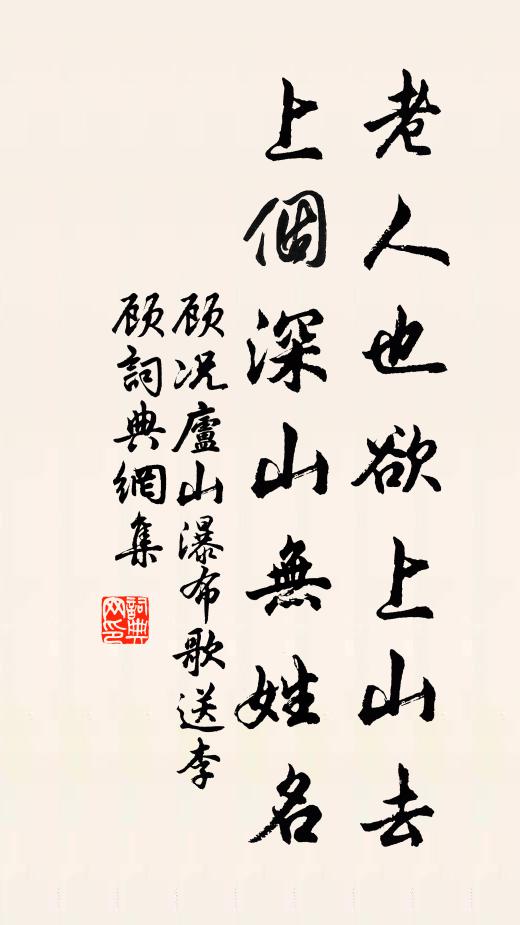 老人也欲上山去
上個深山無姓名
顾况廬山瀑布歌送李
顾詞典網集
詞典网印